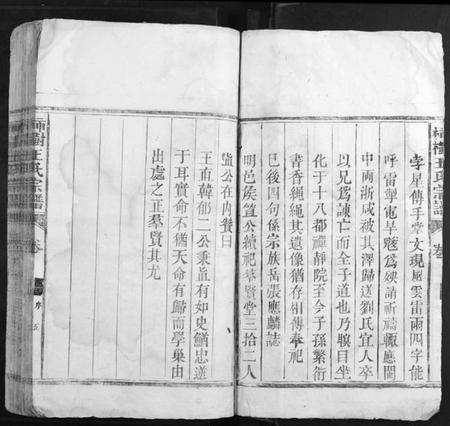 孛星傳手掌文現風雲雷雨四字能
呼雷掣電旱魃爲殃請祈禱輙應閩
中兩浙咸被其澤歸送劉氏宜人卒
以兄爲諫亡而全子道也乃瞑目坐
化于十八都禪靜院至今子孫繁衍
書香繩繩其遺像猶存相傳奉祀
已後四句係宗族岳張應麟誌
明邑侯笪公續祀羣賢堂三拾二人
笪公在內贊曰
王直韓郁二公秉直有如史鰌忠遂
于耳實命不猶天命有歸而學巢由
出處之正羣賢其尤
樹王氏宗譜
卷
序
五
樹王氏宗譜
卷